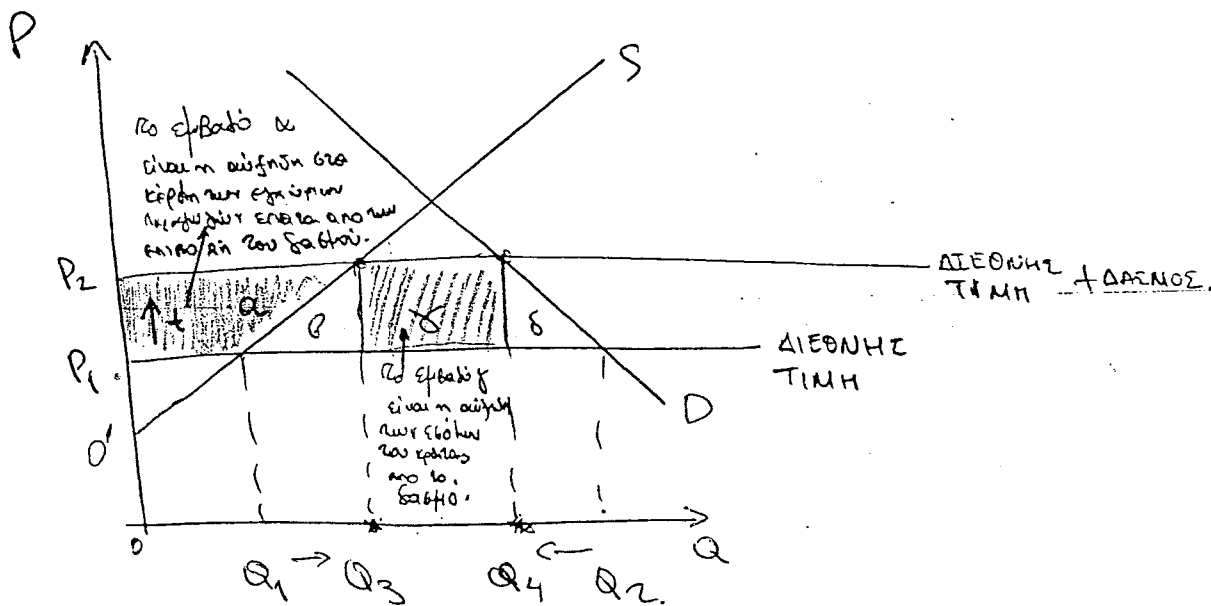 P
S
Το εμβαδό α
είναι η αύξηση στα
κέρδη των εγχώριων
παραγωγών έπειτα από την
επιβολή του δασμού.
P2
ΔΙΕΘΝΗΣ
ΤΙΜΗ + ΔΑΣΜΟΣ.
t α β γ δ
P1
ΔΙΕΘΝΗΣ
ΤΙΜΗ
Το εμβαδό γ
είναι η αύξηση
των εσόδων
του κράτους
από το
δασμό.
D
0'
0
Q1 → Q3 Q4 ← Q2.
Q